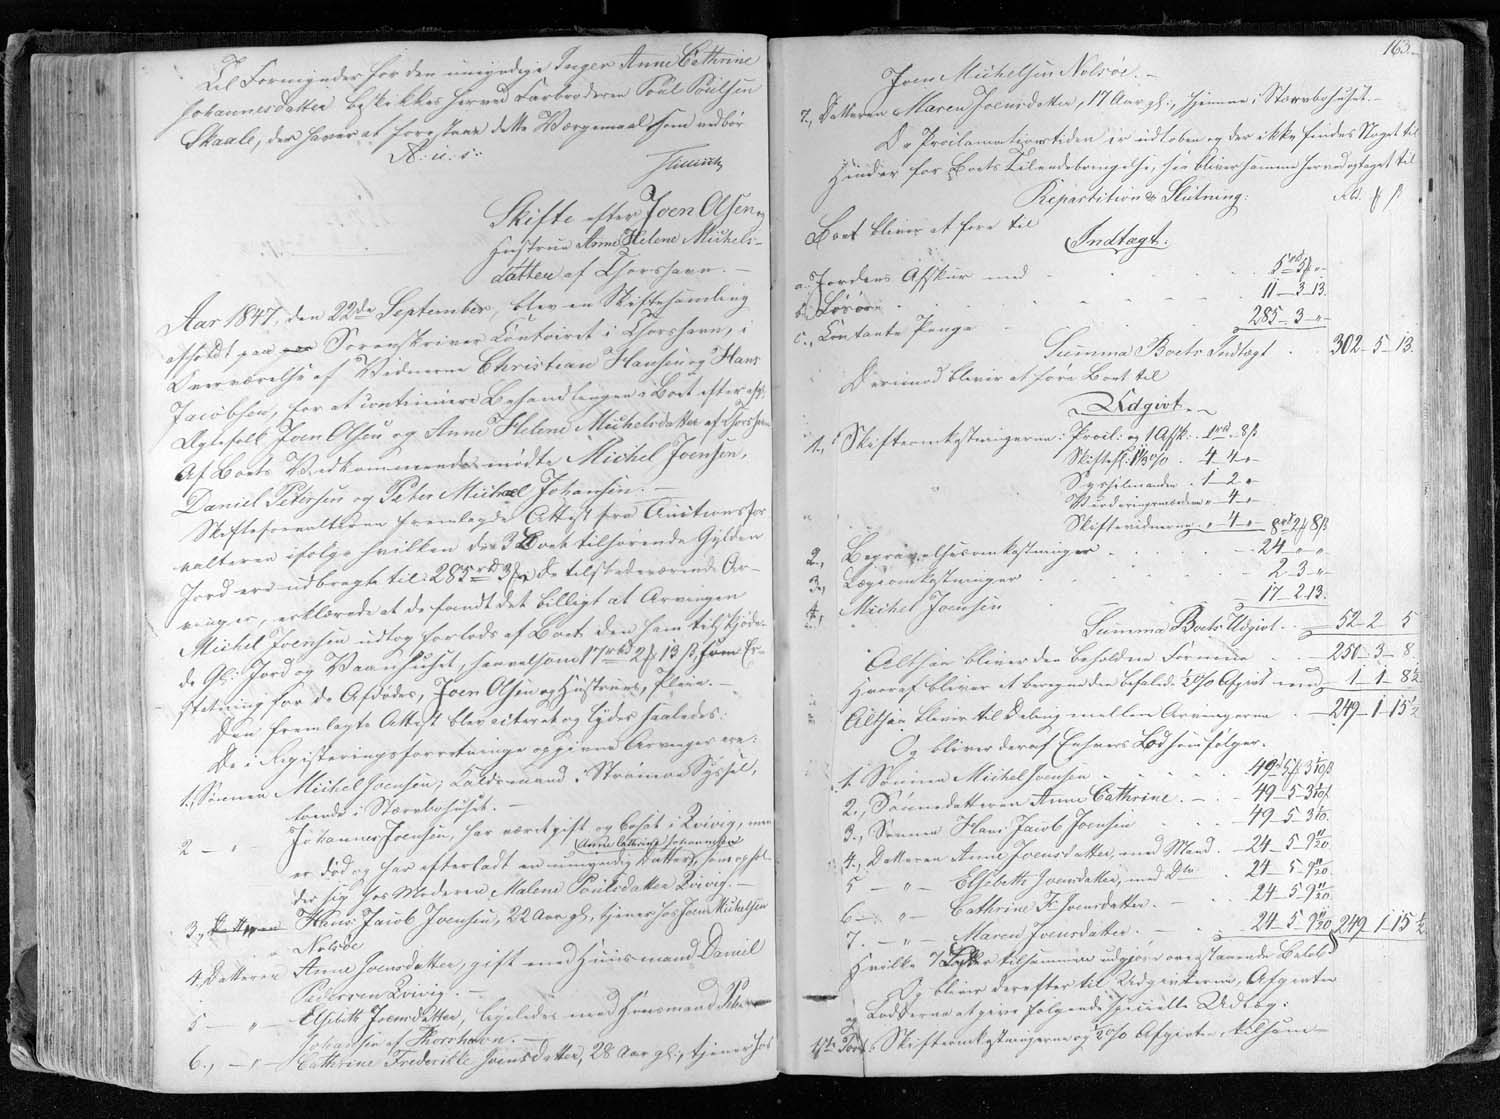 Til Formynder for den umyndige Inger Anne Cathrine
Johannesdatter beskikkes herved Farbroderen Poul Poulsen
Skaale, der haver at forestaae dette Værgemaal som vedbør
A: u: s:
Tillisch
Skifte efter Joen Olsen og
Hustrue Anne Helene Michels-
datter af Thorshavn. —
Aar 1847, den 22de September, blev en Skiftesamling
afholdt paa Sorenskriver Contoiret i Thorshavn, i
Overværelse af Vidnerne Christian Hansen og Hans
Jacobsen, for at continuere Behandlingen i Boet efter afg:
Ægtefolk Joen Olsen og Anne Helene Michelsdatter af Thorshavn
Af Boets Vedkommende mødte Michel Joensen,
Daniel Petersen og Peter Michael Johansen. —
Skifteforvalteren fremlagde Attest fra Auctionsfor
valteren ifølge hvilken de 3 Boet tilhørende Gylden
Jord ere udbragte til 285 rbd 3 ß, de tilstedeværende Ar-
vinger, erklærede at de fandt det billigt at Arvingen
Michel Joensen udtog forlods af Boet den ham tilskjøde-
de Gl: Jord og Vaanhuset, saavelsom 17 rbd 2 13 ß, som Er-
statning for de Afdødes, Joen Olsen og Hustrues, Pleie. —
Den fremlagte Attest blev citeret og lyder saaledes:
De i Registeringsforretninge opgivne Arvinger ere:
1., Sønnen Michel Joensen, Kaldsmand i Strømøe Syssel,
boende i Stervbohuset. —
2 — " Johannes Joensen, har været gift og bosat i Qvivig, men
Anne Cathrine Johannesdatter
er død og har efterladt en umyndig Datter, som ophol-
der sig hos Moderen Malene Poulsdatter Qvivig. —
3., Hans Jacob Joensen, 22 Aar gl., tjener hos Joen Michelsen
Nolsøe
4., Datteren Anne Joensdatter, gift med Huusmand Daniel
Pedersen Qvivig. —
5 — " — Elsebeth Joensdatter, ligeledes med Huusmand Peter
Johansen af Thorshavn. —
6., — " — Cathrine Frederikke Joensdatter, 28 Aar gl., tjener hos
163.
Joen Michelsen Nolsøe. —
7., Datteren Maren Joensdatter, 17 Aar gl., hjemme i Stervbohuset. —
Da Proclamationstiden er udløben og der ikke findes Noget til
Hinder for Boets Tilendebringelse, saa bliver samme herved optaget til
Repartition & Slutning: Rd. ß
Boet bliver at føre til
Indtægt:
a. Jordens Afskur med 5 rd 5 " —
b. Løsøre 11 — 3 — 13.
c., Contante Penge 285 — 3 — " —
Summa Boets Indtægt 302 — 5 — 13.
Derimod bliver at føre Boet til
Udgivt. —
1., Skifteomkostningerne: Procl: og 1 Afsk: 1 rd " 8 ß
Skiftesl. 1⅓% 4 4 " —
Sysselmanden 1 — 2 " —
Vurderingsmændene " 4 " —
Skiftevidnerne " 4 " — 8 rd 2 8 ß
2., Begravelsesomkostninger 24 — " — " —
3., Lægeomkostninger 2 — 3 — " —
4., Michel Joensen 17 — 2 — 13.
Summa Boets Udgivt 52 — 2 — 5
Altsaa bliver den beholdne Formue 250 — 3 — 8
Hvoraf bliver at beregne den befalede ½% Afgivt med 1 — 1 — 8½
Altsaa bliver til Deling mellem Arvingerne 249 — 1 — 15½
Og bliver deraf Enhvers Lod som følger.
1. Sønnen Michel Joensen 49 rd 5 3 1/10 ß
2., Sønnedatteren Anne Cathrine. — 49 — 5 — 3 1/10
3., Sønnen Hans Jacob Joensen 49 — 5 — 3 1/10
4., Datteren Anne Joensdatter, med Mand. 24 — 5 — 9 11/20
5 — " — Elsebeth Joensdatter, med Do. 24 — 5 — 9 11/20
6 — " — Cathrine F. Joensdatter. — 24 — 5 — 9 11/20
7. — " — Maren Joensdatter. — 24 — 5 — 9 11/20 249 1 15½
Hvilke 7 Lodder tilsammen udgjør ovenstaaende Beløb
Og bliver derefter til Udgivterne, Afgivten
og Lodderne at give følgende specielle Udlæg:
1ste Post: Skifteomkostningerne og ½% Afgivten, tilsam-